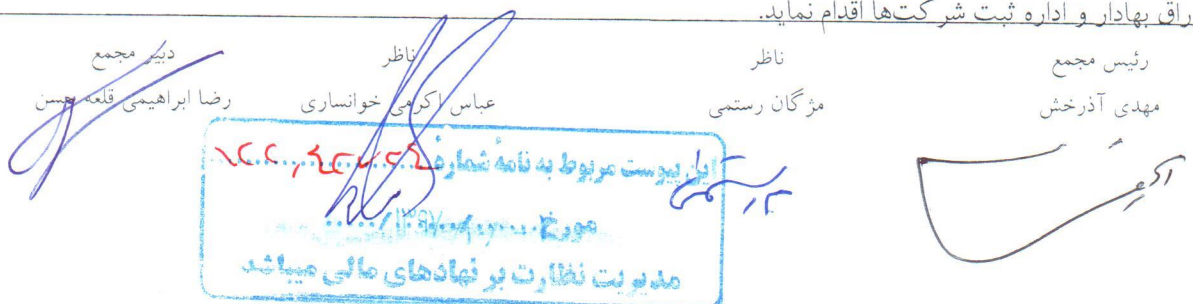 راق بهادار و اداره ثبت شرکت‌ها اقدام نماید.
رئیس مجمع ناظر ناظر دبیر مجمع
مهدی آذرخش مژگان رستمی عباس اکرمی خوانساری رضا ابراهیمی قلعه حسن
این پیوست مربوط به نامهٔ شمارهٔ
مورخ
مدیریت نظارت بر نهادهای مالی میباشد